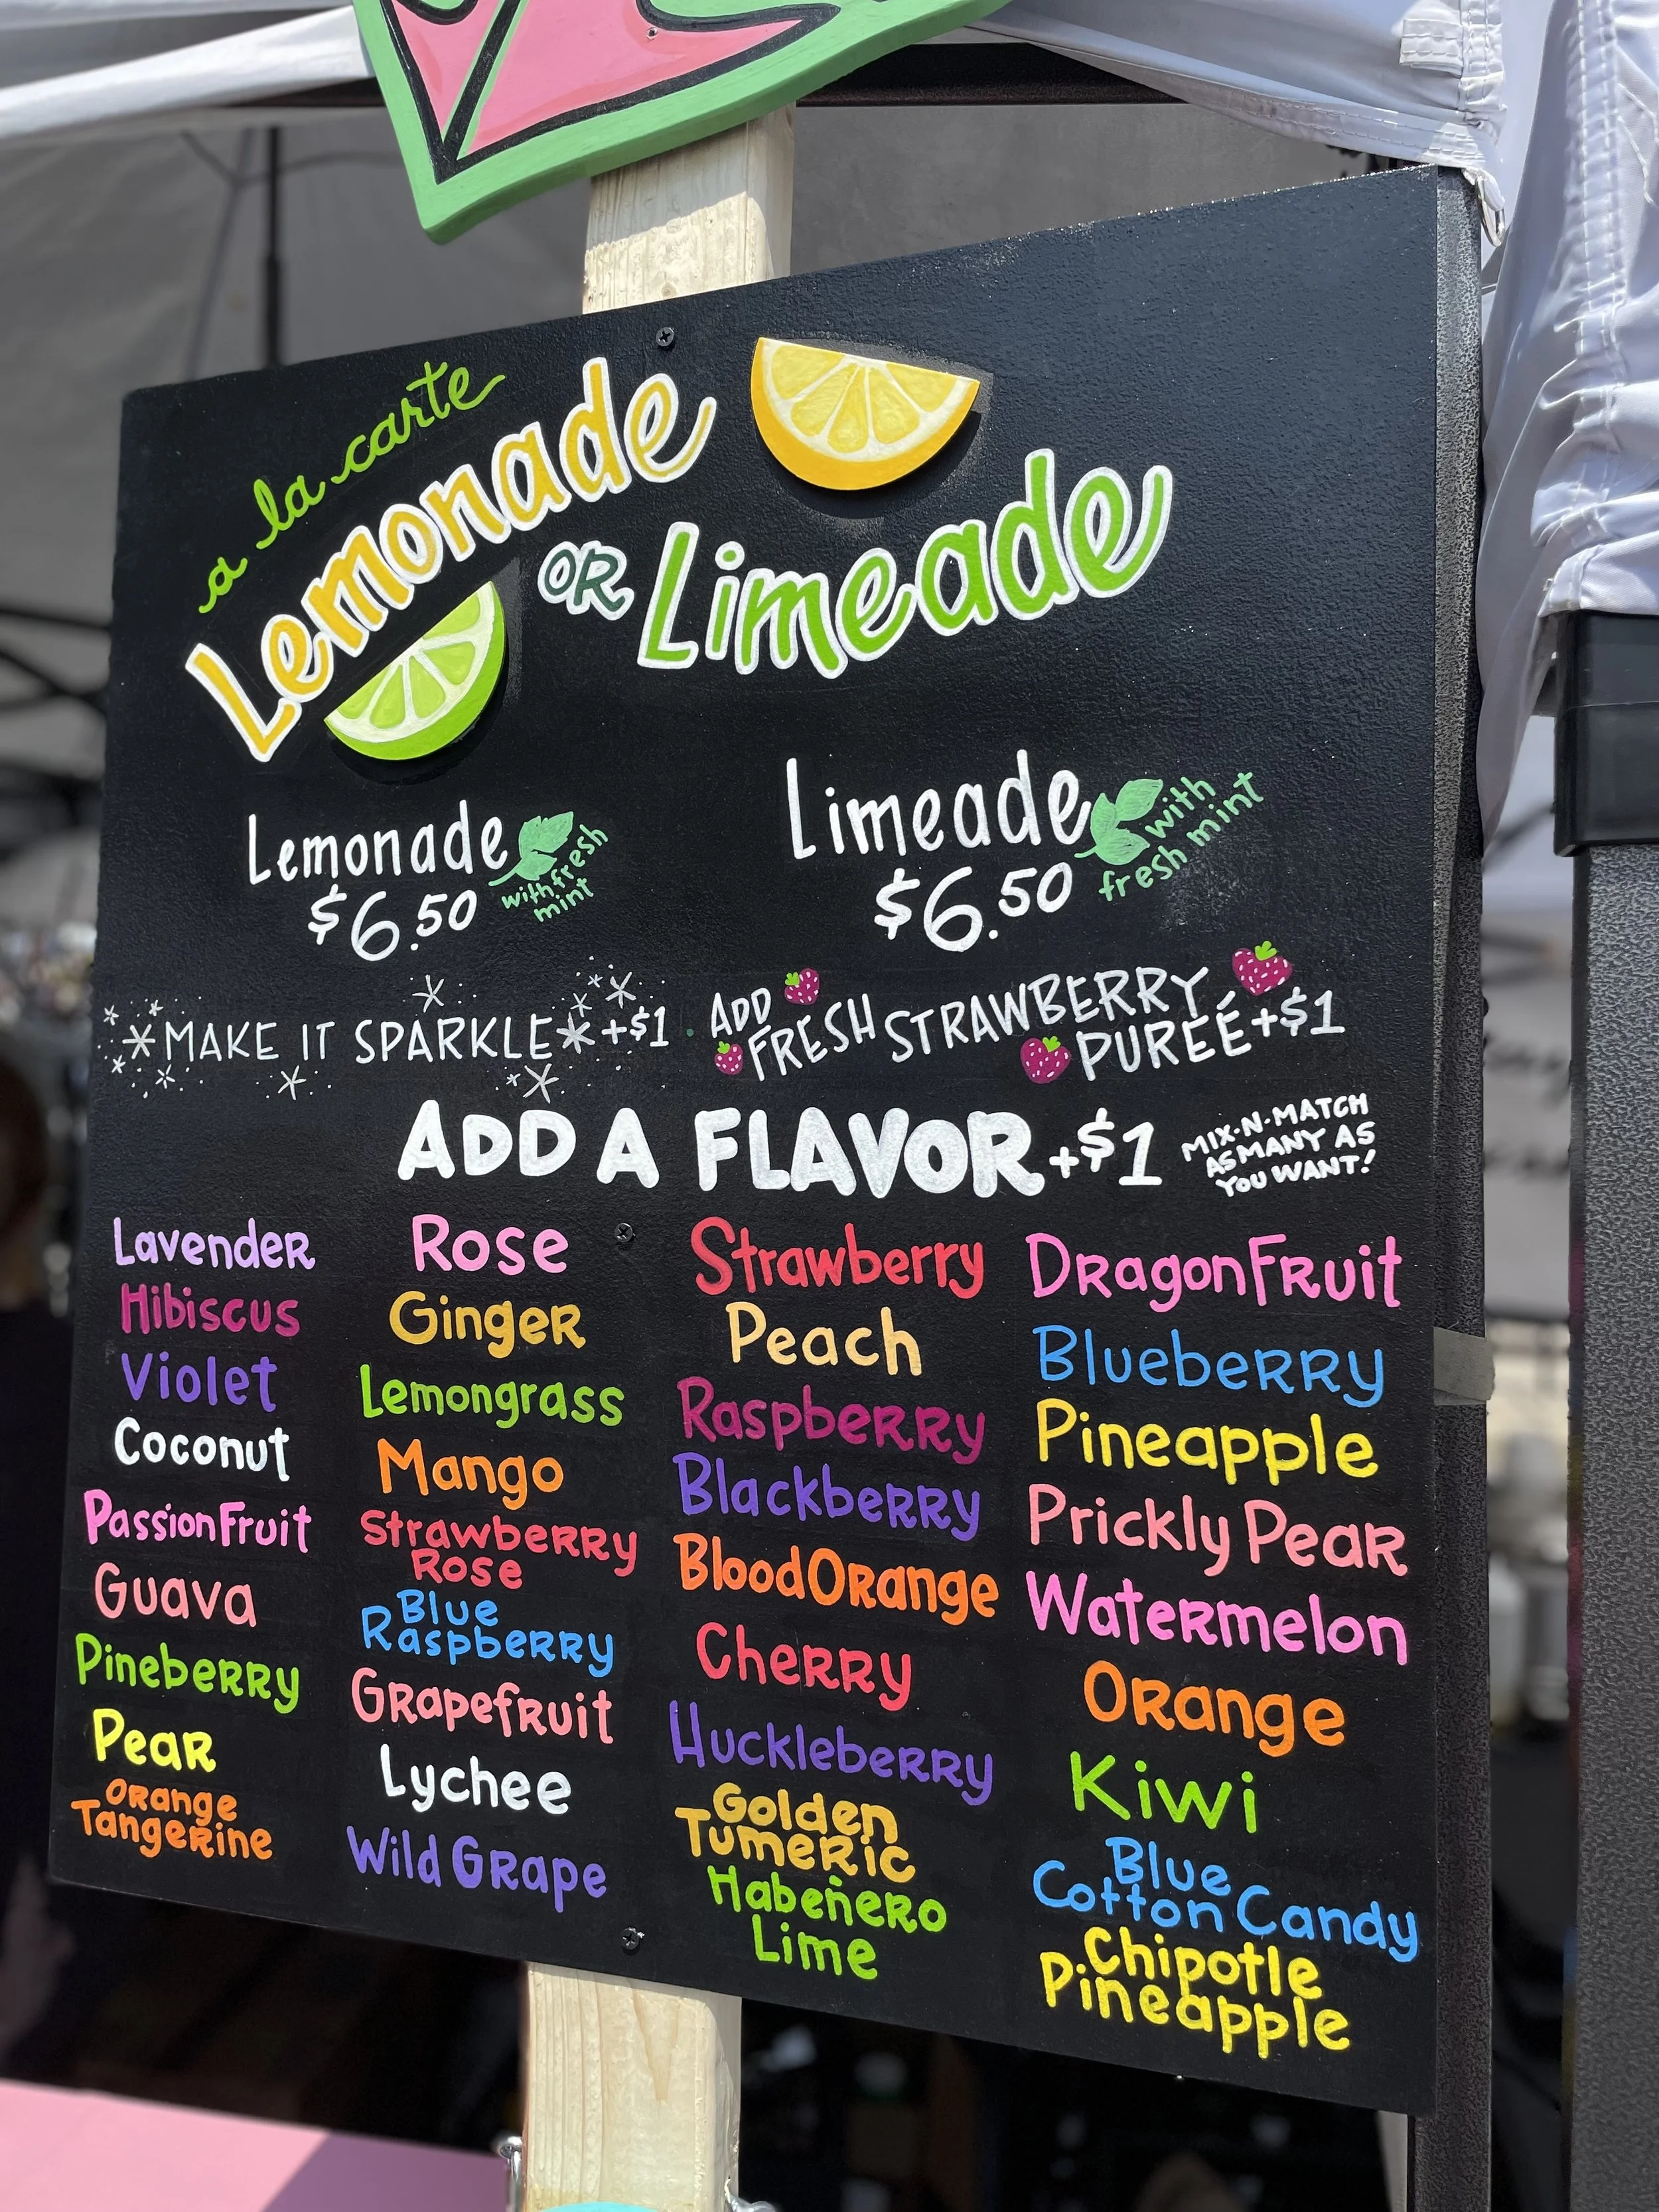 a la carte
Lemonade
OR Limeade
Lemonade
with fresh
mint
$6.50
Limeade
with
fresh mint
$6.50
MAKE IT SPARKLE +$1
ADD
FRESH STRAWBERRY
PURÉE +$1
ADD A FLAVOR +$1
MIX-N-MATCH
AS MANY AS
YOU WANT!
Lavender
Hibiscus
Violet
Coconut
PassionFruit
Guava
Pineberry
Pear
Orange
Tangerine
Rose
Ginger
Lemongrass
Mango
Strawberry
Rose
Blue
Raspberry
Grapefruit
Lychee
Wild Grape
Strawberry
Peach
Raspberry
Blackberry
Blood Orange
Cherry
Huckleberry
Golden
Tumeric
Habeñero
Lime
DragonFruit
Blueberry
Pineapple
Prickly Pear
Watermelon
Orange
Kiwi
Blue
Cotton Candy
Chipotle
Pineapple